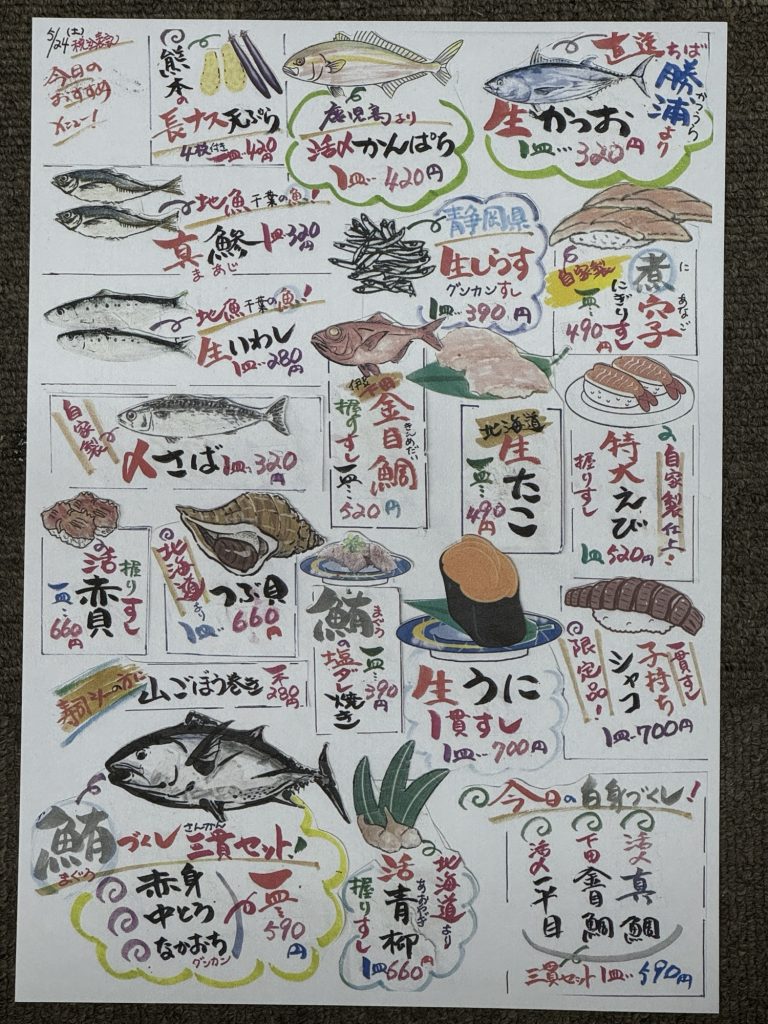 5/24(土)
今日の
おすすめ
メニュー!
熊本の
長ナス天ぷら
4枚付き一皿…420円
鹿児島より
活〆かんぱち
1皿…420円
直送ちば
勝浦より
かつうら
生かつお
1皿…320円
地魚千葉の魚!
真鯵一皿…320円
まあじ
静岡県
生しらす
グンカンすし
1皿…390円
自家製
煮穴子
に あなご
にぎりすし
一皿…490円
地魚千葉の魚!
生いわし
1皿…280円
下田
金目鯛
きんめだい
握りすし
一皿…520円
北海道
生たこ
一皿…490円
自家製仕上…
特大えび
握りすし
1皿520円
自家製
〆さば1皿…320円
活赤貝
握りすし
一皿…660円
北海道より
つぶ貝
1皿…660円
鮪の塩ダレ焼き
まぐろ
一皿…390円
生うに
1貫すし
1皿…700円
一貫すし
子持ち
シャコ
限定品!
1皿…700円
山ごぼう巻き
一本280円
鮪づくし三貫セット!
まぐろ
さんかん
赤身
中とろ
なかおち
グンカン
一皿…590円
北海道より
活青柳
あおやぎ
握りすし
1皿660円
今日の白身づくし!
活〆真鯛
下田金目鯛
活〆平目
三貫セット1皿…590円